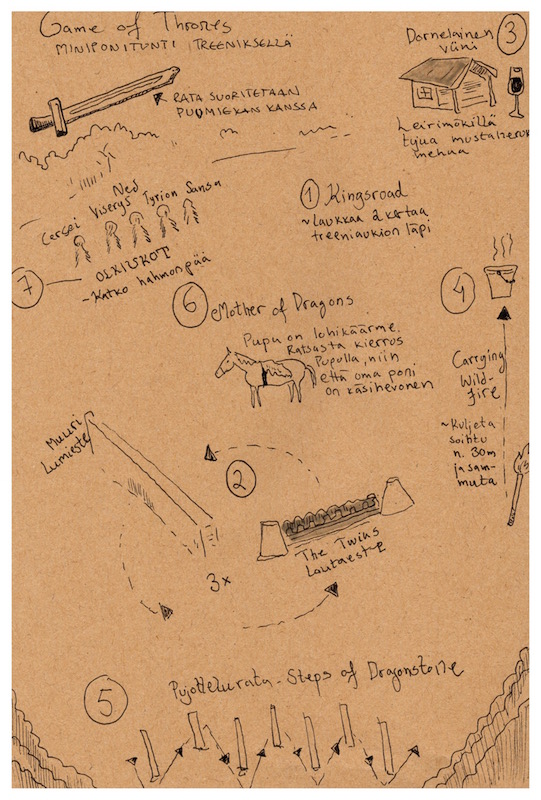 Game of Thrones
MINIPONITUNTI TREENIKSELLÄ
RATA SUORITETAAN
PUUMIEKAN KANSSA
Dornelainen
viini
3
Leirimökillä
tujua mustaherukka
mehua
Cersei
Viserys
Ned
Tyrion
Sansa
7
OLKIUKOT
-Katko hahmon pää
1 Kingsroad
~Laukkaa 2 kertaa
treeniaukion läpi
6 Mother of Dragons
Pupu on lohikäärme.
Ratsasta kierros
Pupulla, niin
että oma poni
on käsihevonen
4
Carrying
Wild-
fire
~Kuljeta
soihtu
n. 30m
ja sam-
muta
Muuri
Lumieste
2
The Twins
Lautaeste
3x
5
Pujottelurata - Steps of Dragonstone